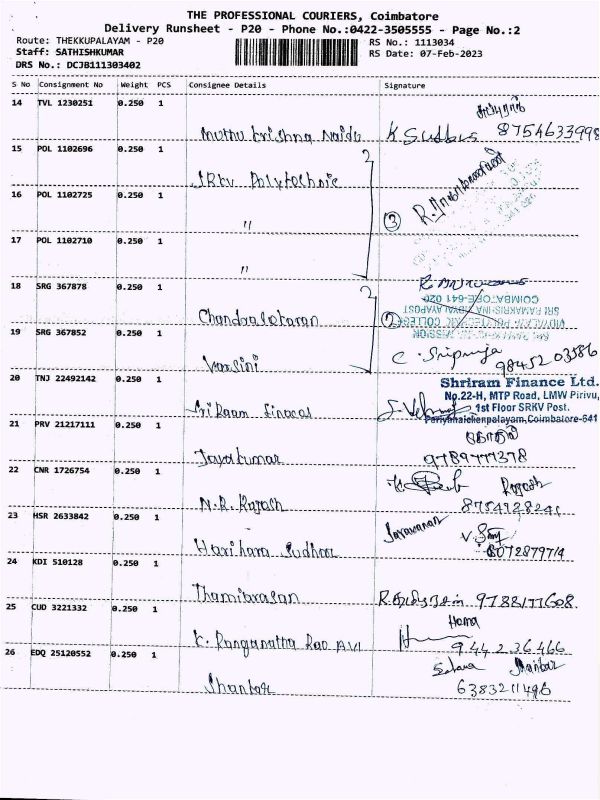 THE PROFESSIONAL COURIERS, Coimbatore
Delivery Runsheet - P20 - Phone No.:0422-3505555 - Page No.:2
Route: THEKKUPALAYAM - P20
RS No.: 1113034
Staff: SATHISHKUMAR
RS Date: 07-Feb-2023
DRS No.: DCJB111303402
S No Consignment No Weight PCS Consignee Details Signature
14 TVL 1230251 0.250 1
Muthu krishna Naidu 8754633998
15 POL 1102696 0.250 1
Polytechnic
16 POL 1102725 0.250 1
" 3
17 POL 1102710 0.250 1
"
18 SRG 367878 0.250 1
COIMBATORE-641 020
SRI RAMAKRISHNA VIDYALAYAPOST
Chandrasekaran
19 SRG 367852 0.250 1
Varsini 98452 03586
20 TNJ 22492142 0.250 1
Shriram Finance Ltd.
No.22-H, MTP Road, LMW Pirivu,
1st Floor SRKV Post.
Periyanaickenpalayam,Coimbatore-641
Sri Raam
21 PRV 21217111 0.250 1
Jayakumar 9789777378
22 CNR 1726754 0.250 1
Rajesh
N.R. Rajesh
23 HSR 2633842 0.250 1
Saravanan
Hari hara Sudhan 8072879714
24 KDI 510128 0.250 1
Thamilarasan 9788177608
25 CUD 3221332 0.250 1
Hama
K. Ranganatha Rao 9442236466
26 EDQ 25120552 0.250 1
Shankar 6383211496